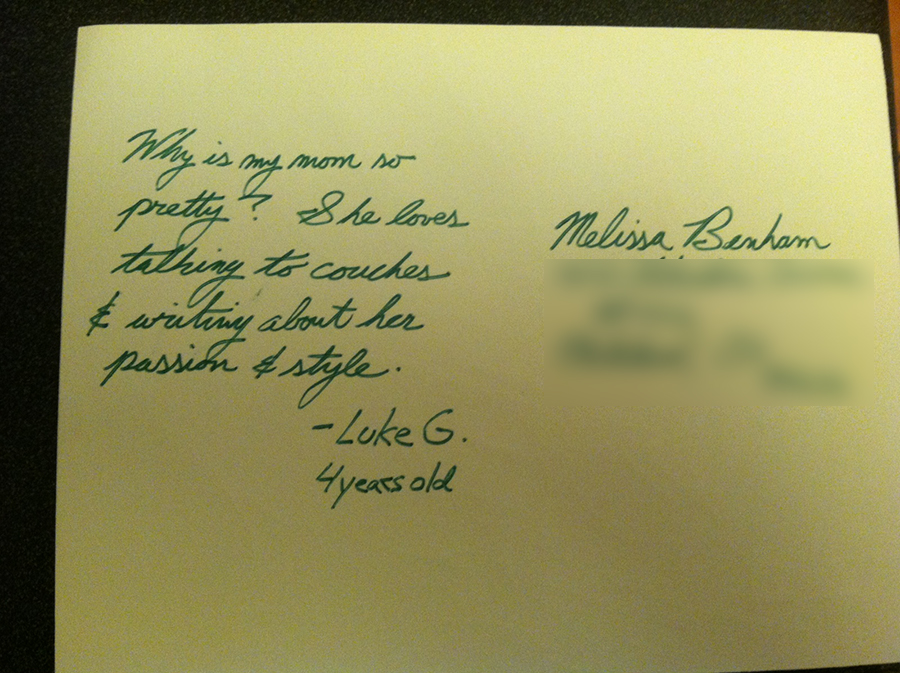 Why is my mom so
pretty? She loves
talking to couches
& writing about her
passion & style.
-Luke G.
4 years old
Melissa Benham